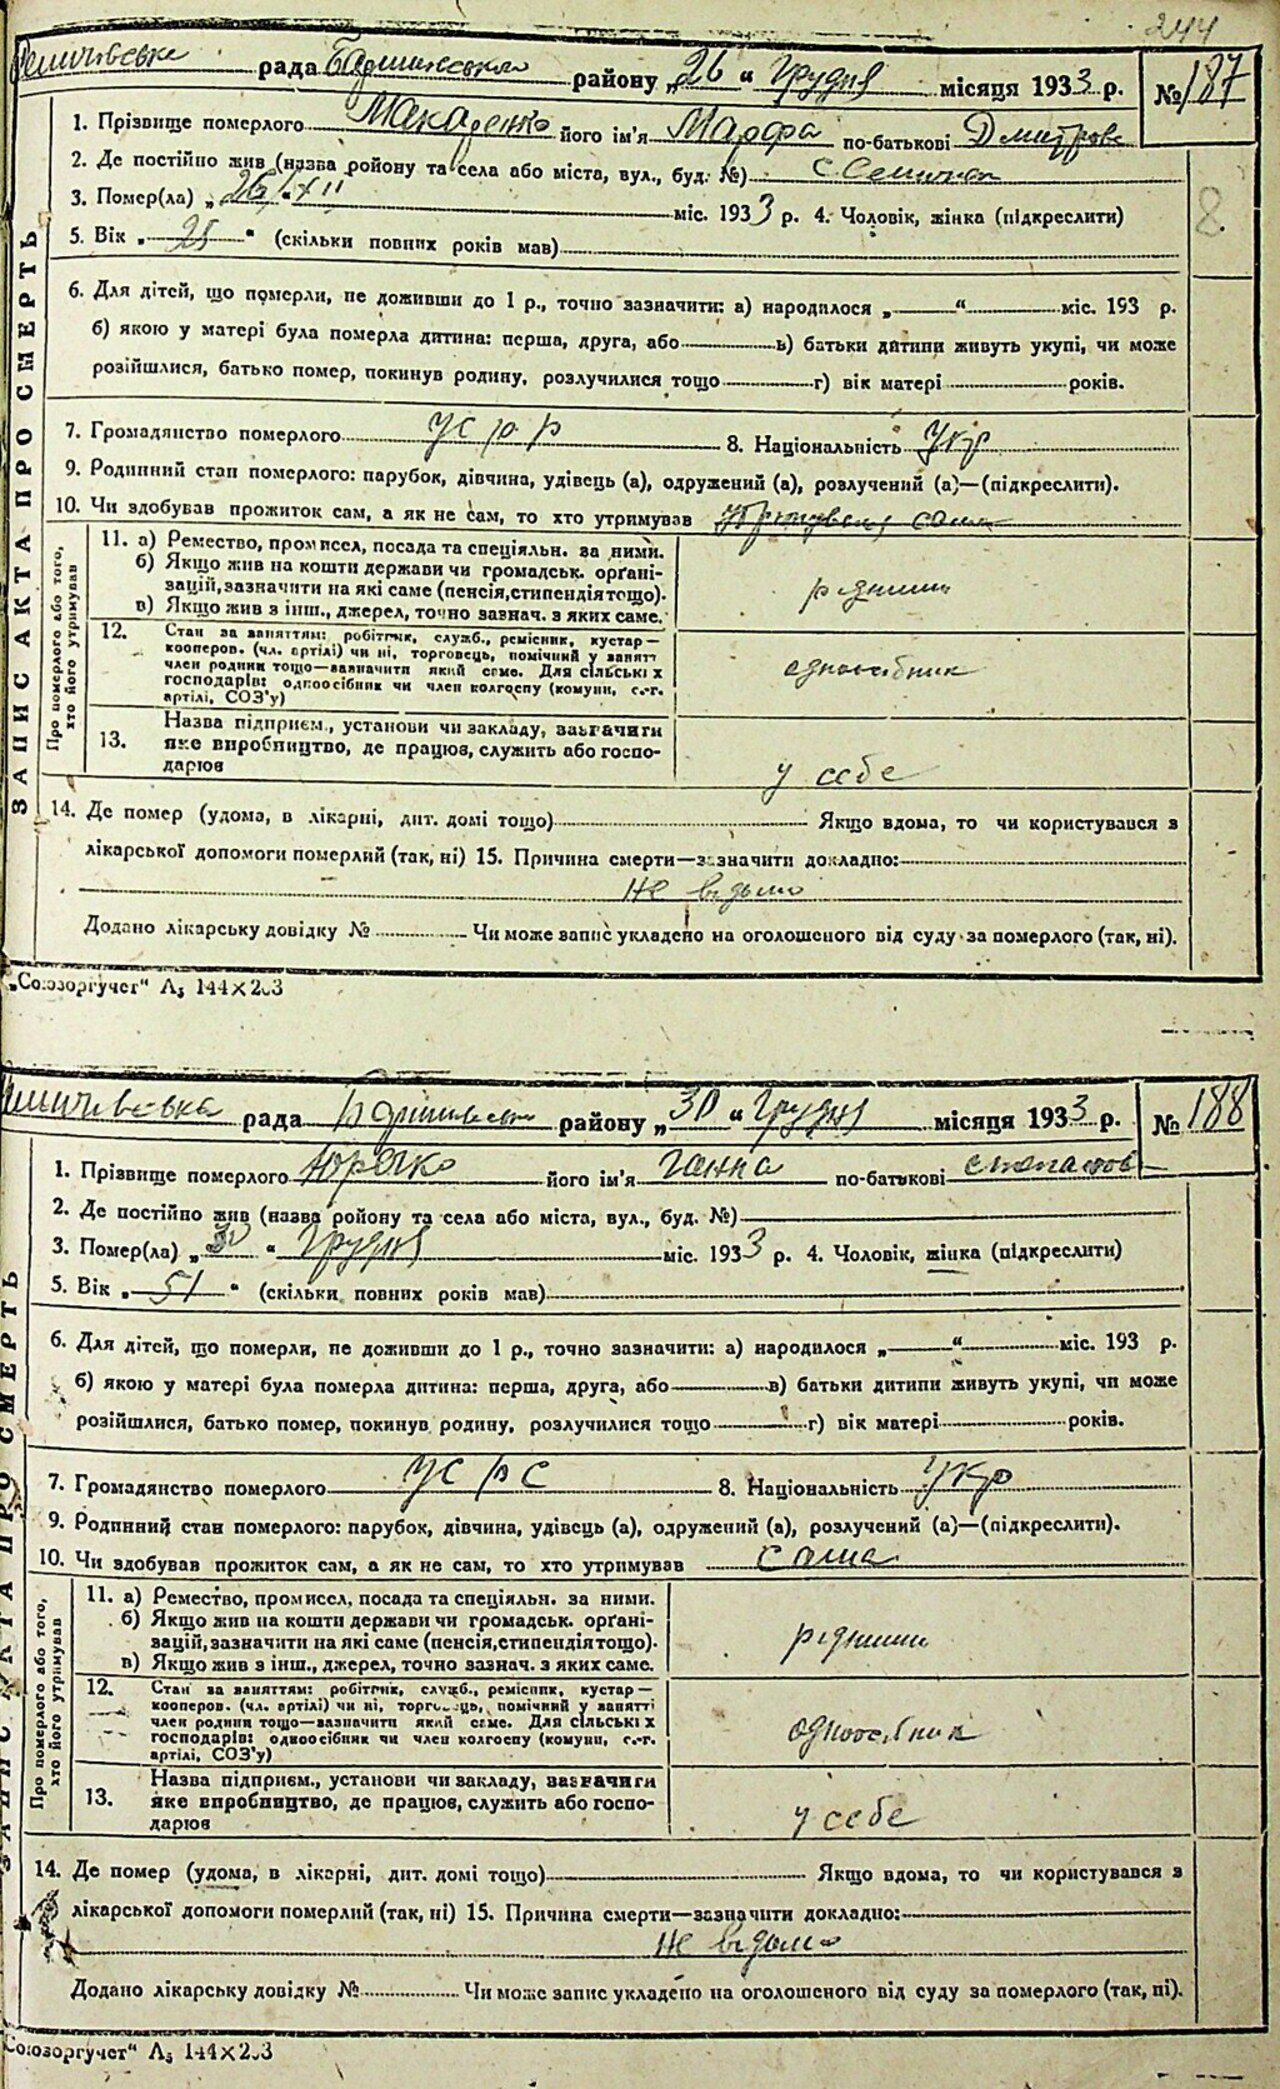 244
рада району „26 “ Грудня місяця 1933 р. № 187
1. Прізвище померлого Макаренко його ім'я Марфа по-батькові Дмитров
2. Де постійно жив (назва ройону та села або міста, вул., буд. №) с.
3. Помер(ла) „ 26 “ XII міс. 1933 р. 4. Чоловік, жінка (підкреслити)
8.
5. Вік „ 25 “ (скільки повних років мав)
6. Для дітей, що померли, не доживши до 1 р., точно зазначити: а) народилося „ “ міс. 193 р.
б) якою у матері була померла дитина: перша, друга, або в) батьки дитини живуть укупі, чи може
розійшлися, батько помер, покинув родину, розлучилися тощо г) вік матері років.
7. Громадянство померлого УСРР 8. Національність Укр
9. Родинний стан померлого: парубок, дівчина, удівець (а), одружений (а), розлучений (а)—(підкреслити).
10. Чи здобував прожиток сам, а як не сам, то хто утримував
ЗАПИС АКТА ПРО СМЕРТЬ
Про померлого або того, хто його утримував
11. а) Ремество, промисел, посада та спеціяльн. за ними.
б) Якщо жив на кошти держави чи громадськ. орґані-
зацій, зазначити на які саме (пенсія, стипендія тощо).
в) Якщо жив з інш., джерел, точно зазнач. з яких саме.
12. Стан за заняттям: робітник, служб., ремісник, кустар—
кооперов. (чл. артілі) чи ні, торговець, помічний у занятт
член родини тощо—зазначити який саме. Для сільських
господарів: одноосібник чи член колгоспу (комуни, с.-г.
артілі, СОЗ'у)
одноосібник
Назва підприєм., установи чи закладу, зазначити
13. яке виробництво, де працює, служить або госпо-
дарює
у себе
14. Де помер (удома, в лікарні, дит. домі тощо) Якщо вдома, то чи користувався з
лікарської допомоги померлий (так, ні) 15. Причина смерти—зазначити докладно:
Не відомо
Додано лікарську довідку № Чи може запис укладено на оголошеного від суду за померлого (так, ні).
„Союзоргучет“ А₅ 144×203
рада району „30 “ Грудня місяця 1933 р. № 188
1. Прізвище померлого його ім'я Ганна по-батькові
2. Де постійно жив (назва ройону та села або міста, вул., буд. №)
3. Помер(ла) „ 30 “ Грудня міс. 1933 р. 4. Чоловік, жінка (підкреслити)
5. Вік „ 51 “ (скільки повних років мав)
6. Для дітей, що померли, не доживши до 1 р., точно зазначити: а) народилося „ “ міс. 193 р.
б) якою у матері була померла дитина: перша, друга, або в) батьки дитини живуть укупі, чи може
розійшлися, батько помер, покинув родину, розлучилися тощо г) вік матері років.
7. Громадянство померлого УСРС 8. Національність Укр
9. Родинний стан померлого: парубок, дівчина, удівець (а), одружений (а), розлучений (а)—(підкреслити).
10. Чи здобував прожиток сам, а як не сам, то хто утримував сама
ЗАПИС АКТА ПРО СМЕРТЬ
Про померлого або того, хто його утримував
11. а) Ремество, промисел, посада та спеціяльн. за ними.
б) Якщо жив на кошти держави чи громадськ. орґані-
зацій, зазначити на які саме (пенсія, стипендія тощо).
в) Якщо жив з інш., джерел, точно зазнач. з яких саме.
12. Стан за заняттям: робітник, служб., ремісник, кустар—
кооперов. (чл. артілі) чи ні, торговець, помічний у занятті
член родини тощо—зазначити який саме. Для сільських
господарів: одноосібник чи член колгоспу (комуни, с.-г.
артілі, СОЗ'у)
одноосібник
Назва підприєм., установи чи закладу, зазначити
13. яке виробництво, де працює, служить або госпо-
дарює
у себе
14. Де помер (удома, в лікарні, дит. домі тощо) Якщо вдома, то чи користувався з
лікарської допомоги померлий (так, ні) 15. Причина смерти—зазначити докладно:
Не відомо
Додано лікарську довідку № Чи може запис укладено на оголошеного від суду за померлого (так, ні).
Союзоргучет“ А₅ 144×203